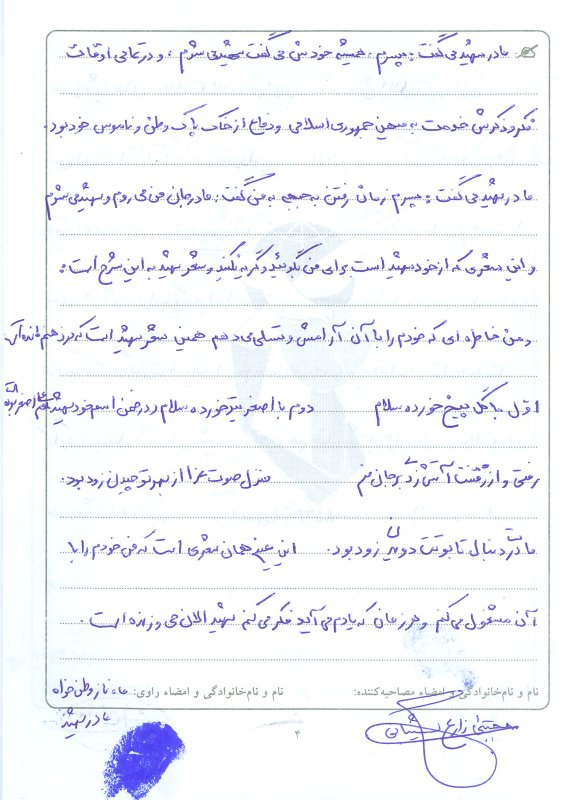 مادر شهید می گفت: پسرم، همیشه خودش می گفت شهید می شوم، و در تمامی اوقات
فکر و ذکرش خدمت به میهن جمهوری اسلامی و دفاع از خاک پاک وطن و ناموس خود بود.
مادر شهید می گفت: پسرم زمان رفتن به جبهه به من گفت: مادر جان من می روم و شهید می شوم
و این شعری که از خود شهید است برای من بگوئید و گریه نکنید و شعر شهید به این شرح است:
و من خاطره ای که خودم را با آن آرامش و تسلی می دهم همین شعر شهید است که در ذهنم مانده
اول با گل پیچ خورده سلام دوم با اصغر تیر خورده سلام در ضمن اسم خود شهید هم اصغر بوده
رفتی و از رفتنت آتش زدی بر جان من منزل صوت عزا از بهر تو چیدن زود بود.
مادرت دنبال تابوتت دویدن زود بود. این عین همان شعری است که من خودم را با
آن مشغول می کنم و هر زمان که یادم می آید فکر می کنم شهید الان حی و زنده است.
نام و نام‌خانوادگی و امضاء مصاحبه‌کننده: نام و نام‌خانوادگی و امضاء راوی: ماه ناز وطن خواه
مجتبی زارع مادر شهید
۴